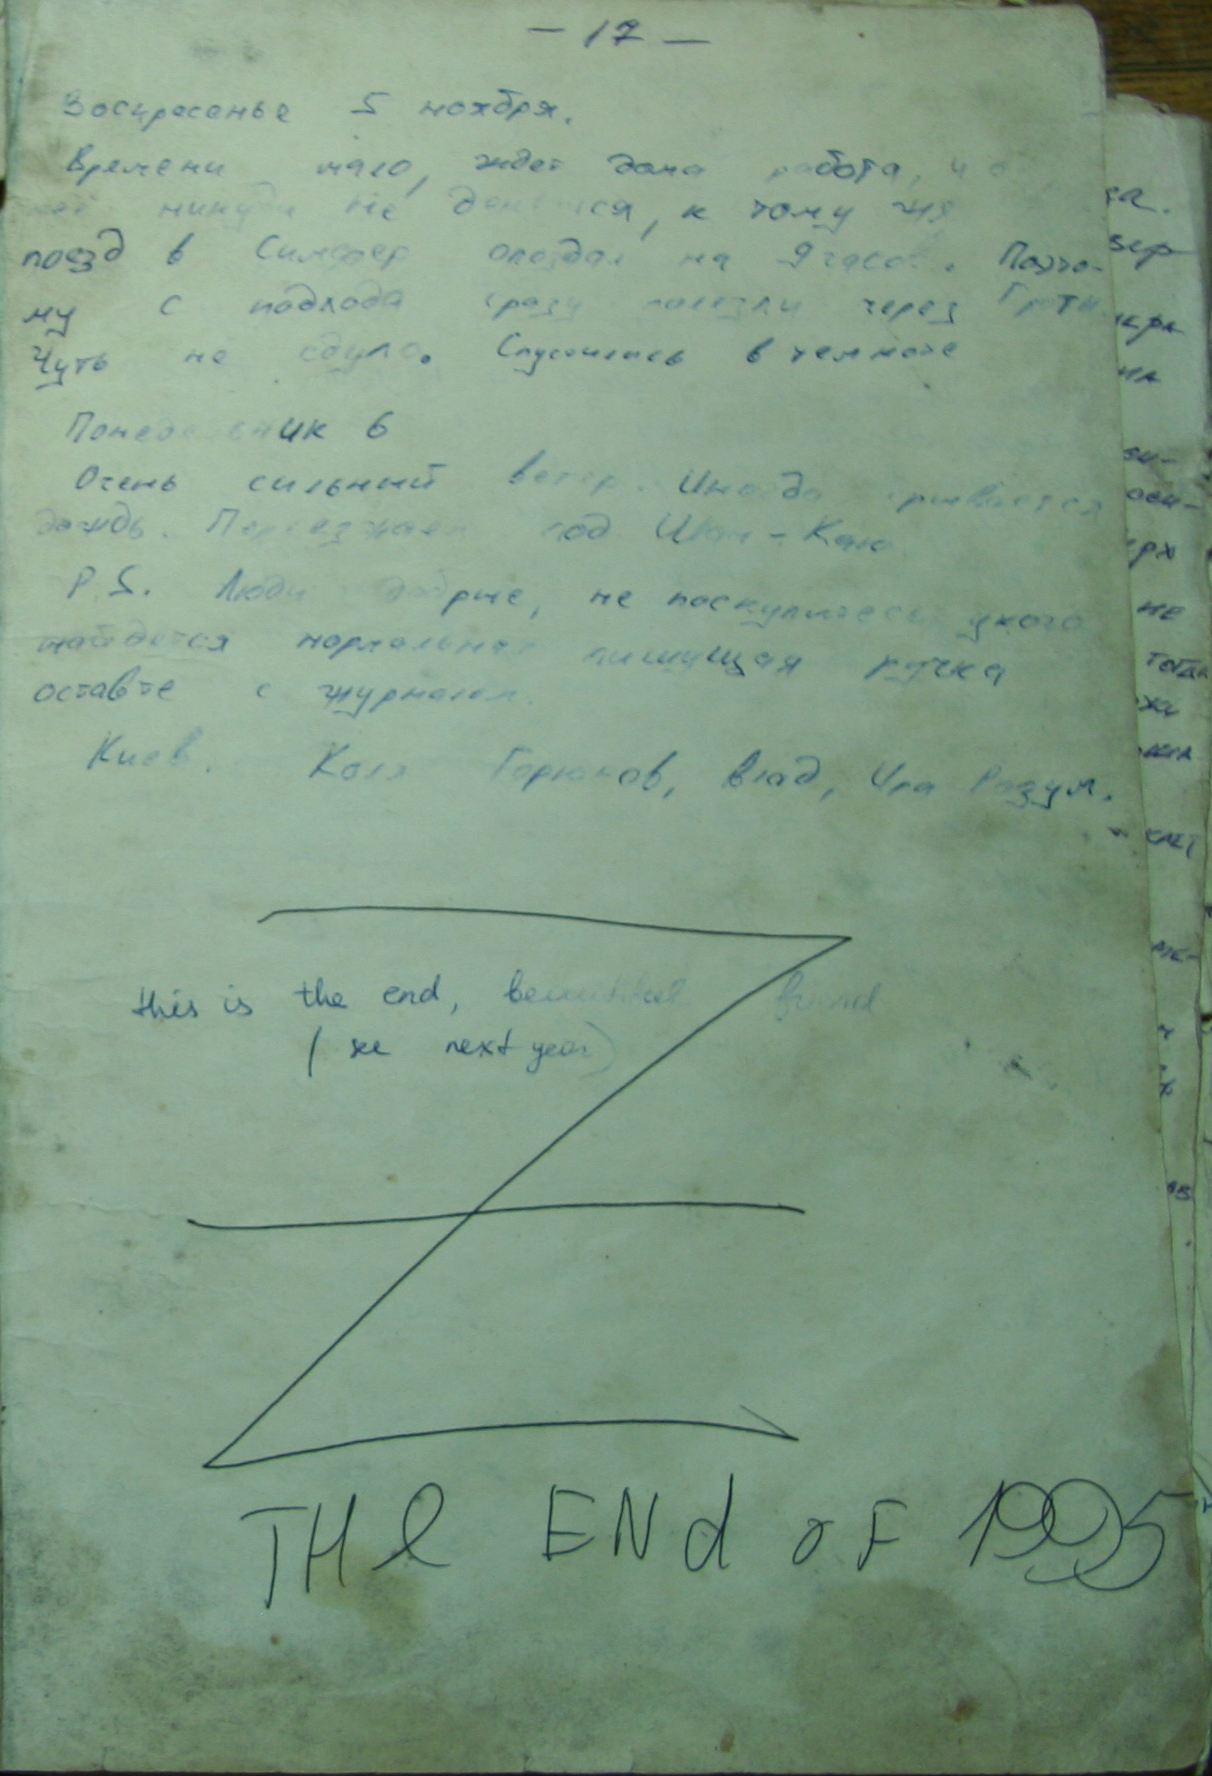 — 17 —
Воскресенье 5 ноября.
Времени мало, ждет дома работа,
никуда не денется, к тому же
поезд в Симфер опоздал на 9 часов. Поэто-
му с подхода сразу полезли через Гроты
Чуть не сдуло. Спустились в темноте
Понедельник 6
Очень сильный ветер. Иногда срывается
дождь. Переезжаем под Шан-Каю
P.S. Люди добрые, не поскупитесь у кого
найдется нормальная пишущая ручка
оставте с журналом.
Киев. Коля Горюнов, Влад, Ира Разум.
this is the end, beautiful friend
(see next year)
THe ENd oF 1995